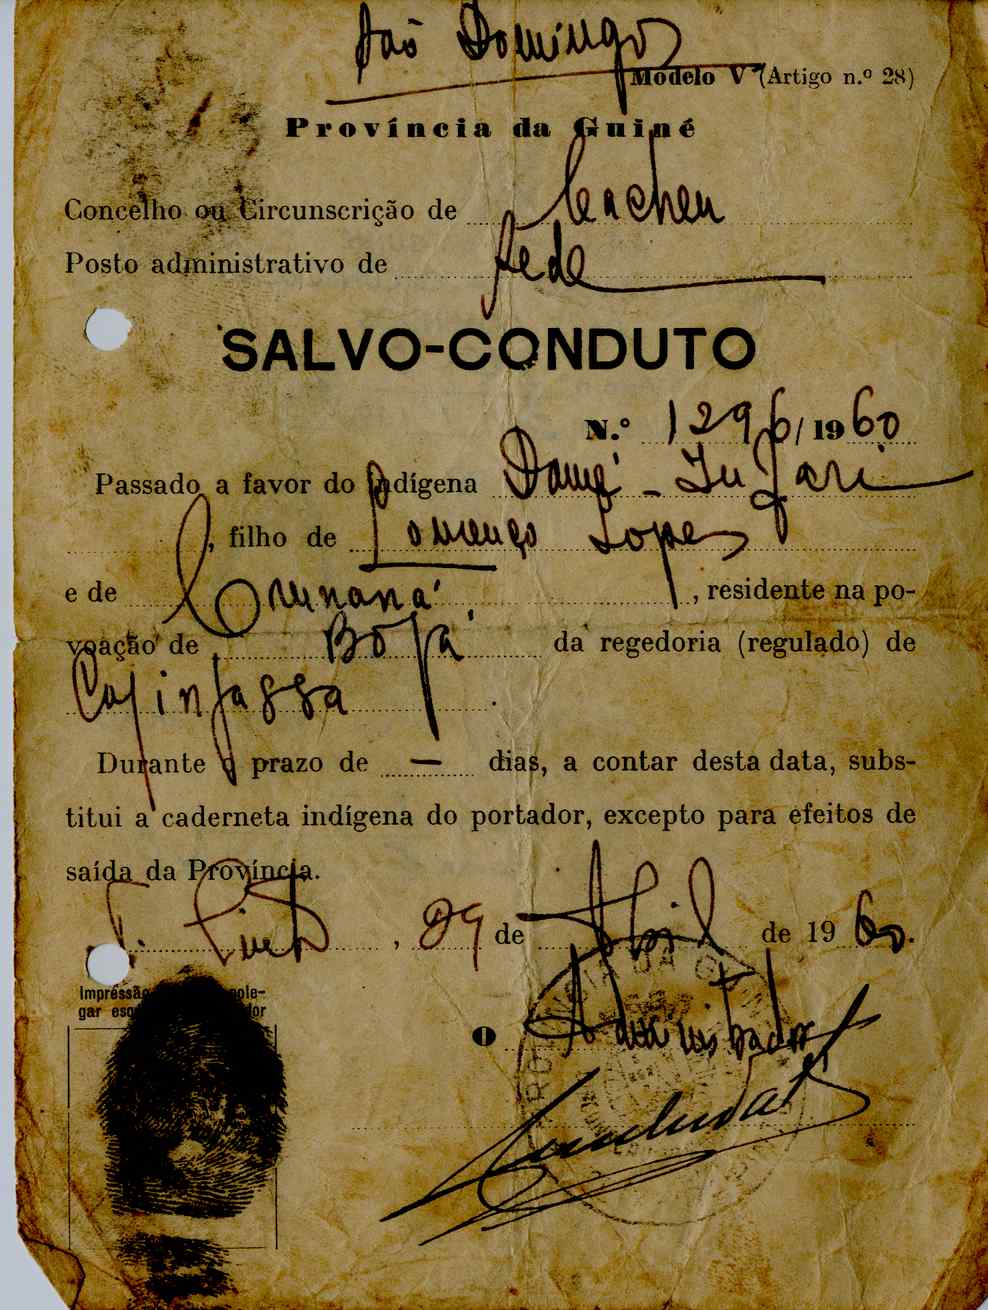 São Domingos
Modelo V (Artigo n.º 28)
Província da Guiné
Concelho ou Circunscrição de Cacheu
Posto administrativo de Sede
SALVO-CONDUTO
N.º 1296/1960
Passado a favor do indígena Damé - Injari
, filho de Lourenço Lopes
e de Cumaná, residente na po-
voação de Bojá da regedoria (regulado) de
Capinjassa.
Durante o prazo de — dias, a contar desta data, subs-
titui a caderneta indígena do portador, excepto para efeitos de
saída da Província.
T. Pinto, 29 de Abril de 1960.
Impressão pole-
gar esq dor
O Administrador